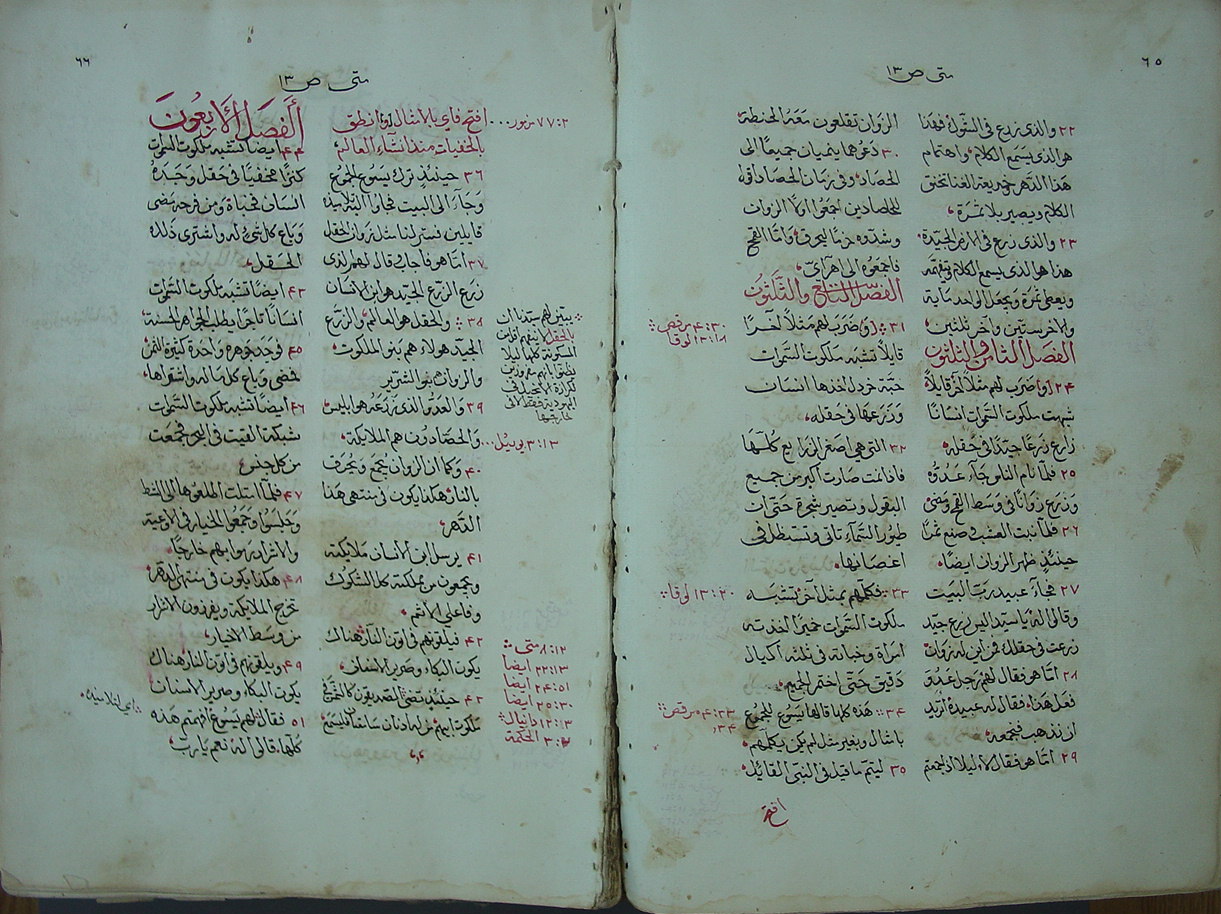 ٦٥
متى ص ١٣
٢٢ والذى زرع فى الشوك فهذا
هو الذى يسمع الكلام، واهتمام
هذا الدهر وخديعة الغنا تخنق
الكلام ويصير بلا ثمرة،
٢٣ والذى زرع فى الارض الجيدة،
هذا هو الذى يسمع الكلام ويفهمه
ويعطى ثمرة ويجعل الواحد ماية
والاخر ستين وآخر ثلثين،
الفصل الثامن والثلثون
٢٤ وضرب لهم مثلاً آخر قايلاً
شبهت ملكوت السموات انسانا
زارع زرعا جيدا فى حقله،
٢٥ فلما نام الناس جآء عدوه
وزرع زوانا فى وسط القمح ومضى
٢٦ فلما نبت العشب صنع ثمرا
حينئذٍ ظهر الزوان ايضا،
٢٧ فجآء عبيد رب البيت
وقالوا له يا سيد اليس زرع جيد
زرعت فى حقلك فمن اين له زوان
٢٨ امّا هو فقال لهم رجل عدو
فعل هذا، فقال له عبيده أتريد
ان نذهب فنجمعه،
٢٩ امّا هو فقال لا، ليلا اذ تجمعتم
الزوان تقلعون معه الحنطة،
٣٠ دعوهما ينميان جميعا الى
الحصاد، وفى زمان الحصاد اقول
للحصادين اجمعوا اولا الزوان
وشدوه حزما ليحرق، وامّا القمح
فاجمعوه الى اهرآى،
الفصل التاسع والثلثون
٣١ وضرب لهم مثلاً آخراً
قايلاً تشبه ملكوت السموات
حبة خردل اخذها انسان
وزرعها فى حقله،
٣٢ التى هى اصغر الزراريع كلها
فاذا نمت صارت اكبر من جميع
البقول وتصير شجرة حتى ان
طيور السمآء تاتى وتستظل فى
اغصانها،
٣٣ فكلمهم بمثل آخر تشبه
ملكوت السموات خميرا اخذته
امراة وخباته فى ثلثة اكيال
دقيق حتى اختمر الجميع،
٣٤ هذه كلها قالها يسوع للجموع
بامثال وبغير مثل لم يكن يكلمهم،
٣٥ ليتم ما قيل فى النبى القائل
٤:٣٠ مرقص
١٣:١٨ لوقا
١٣:٢٠ لوقا
٤:٣٣ مرقص
٣٤
افتح
٦٦
متى ص ١٣
افتح فاى بالامثال وانطق
بالخفيات منذ انشآء العالم،
٣٦ حينئذٍ ترك يسوع الجموع
وجآء الى البيت فجاوا اليه تلاميذه
قايلين فسر لنا مثل زوان الحقل
٣٧ امّا هو فاجاب وقال لهم الذى
زرع الزرع الجيد هو ابن الانسان
٣٨ والحقل هو العالم، والزرع
الجيد هولاء هم بنو الملكوت،
والزوان هم بنو الشرير
٣٩ والعدو الذى زرعه هو ابليس،
والحصادون هم الملايكة،
٤٠ وكما ان الزوان يجمع ويحرق
بالنار هكذا يكون فى منتهى هذا
الدهر،
٤١ يرسل ابن الانسان ملايكته
ويجمعون من مملكته كل الشكوك
وفاعلى الاثم،
٤٢ فيلقونهم فى اتون النار هناك
يكون البكاء وصرير الاسنان،
٤٣ حينئذٍ تضى الصديقون كالشمس فى
ملكوت ابيهم من له اذنان سامعتان فليسمع
٧٧:٢ مزمور
يبين لهم سيدنا ان
بالحقل
٣:١٣ يوييل
٨:١٢ متى
١٣:٢٢ ايضا
٢٤:٥١ ايضا
٢٥:٣٠ ايضا
١٢:١٣ دانيال
٣: الحكمة
الفصل الاربعون
٤٤ ايضا تشبه ملكوت السموات
كنزا مخفيا فى حقل وجده
انسان فخباه ومن فرحه مضى
وباع كل شى له واشترى ذلك
الحقل،
٤٣ ايضا تشبه ملكوت السموات
انسانا تاجرا يطلب الجواهر الحسنة،
٤٥ فوجد جوهره واحدة كثيرة الثمن
فمضى وباع كل ماله واشتراها،
٤٦ ايضا تشبه ملكوت السموات
شبكة القيت فى البحر فجمعت
من كل جنس
٤٧ فلما امتلت اطلعوها الى الشط
وجلسوا وجمعوا الخيار فى الاوعية
والاشرار رموا بهم خارجا،
٤٨ هكذا يكون فى منتهى الدهر،
تخرج الملايكة ويفرزون الاشرار
من وسط الاخيار،
٤٩ ويلقونهم فى اتون النار هناك
يكون البكاء وصرير الاسنان
٥١ فقال لهم يسوع افهمتم هذه
كلها، قالوا له نعم يا رب
اى لتلاميذه